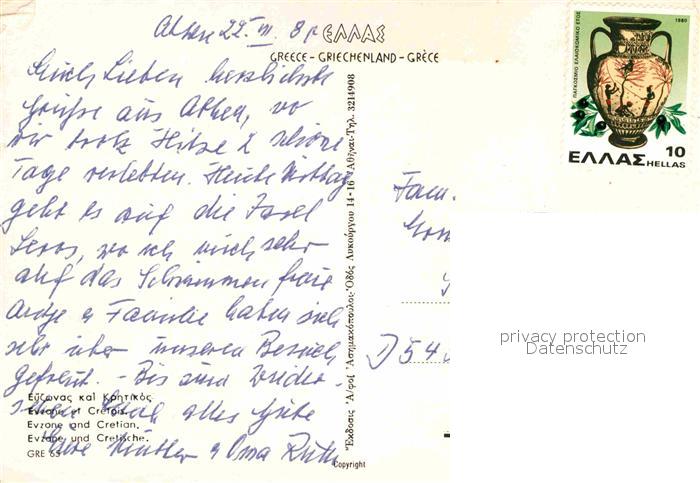 Athen 22. VII. 81
ΕΛΛΑΣ
GREECE - GRIECHENLAND - GRÈCE
Euch Lieben herzlichste
Grüsse aus Athen, wo
wir trotz Hitze 2 schöne
Tage verlebten. Heute Mittag
geht es auf die Insel
Leros, wo ich mich sehr
auf das Schwimmen freue
& Familie haben sich
sehr über unseren Besuch
gefreut. - Bis zum Wieder-
sehen Euch alles Gute
Eure Mutter & Oma Ruth
Εὔζωνας καὶ Κρητικός.
Evzone et Crétois.
Evzone and Cretian.
Evzone und Cretische.
GRE 65
Copyright
Ἔκδοσις Ἀ/φοί Ἀσημακόπουλος Ὁδὸς Λυκούργου 14-16 Ἀθῆναι-Τηλ. 3214908
Fam.
D 54
ΠΑΓΚΟΣΜΙΟ ΕΛΑΙΟΚΟΜΙΚΟ ΕΤΟΣ
1980
10
ΕΛΛΑΣ HELLAS
privacy protection
Datenschutz